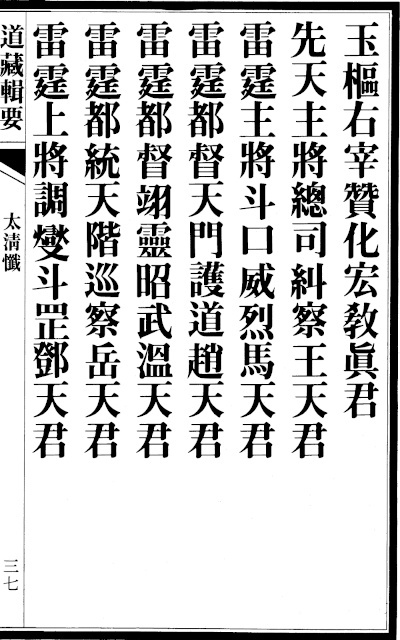 玉樞右宰贊化宏教眞君
先天主將總司糾察王天君
雷霆主將斗口威烈馬天君
雷霆都督天門護道趙天君
雷霆都督翊靈昭武溫天君
雷霆都統天階巡察岳天君
雷霆上將調燮斗罡鄧天君
道藏輯要
太清懺
三七